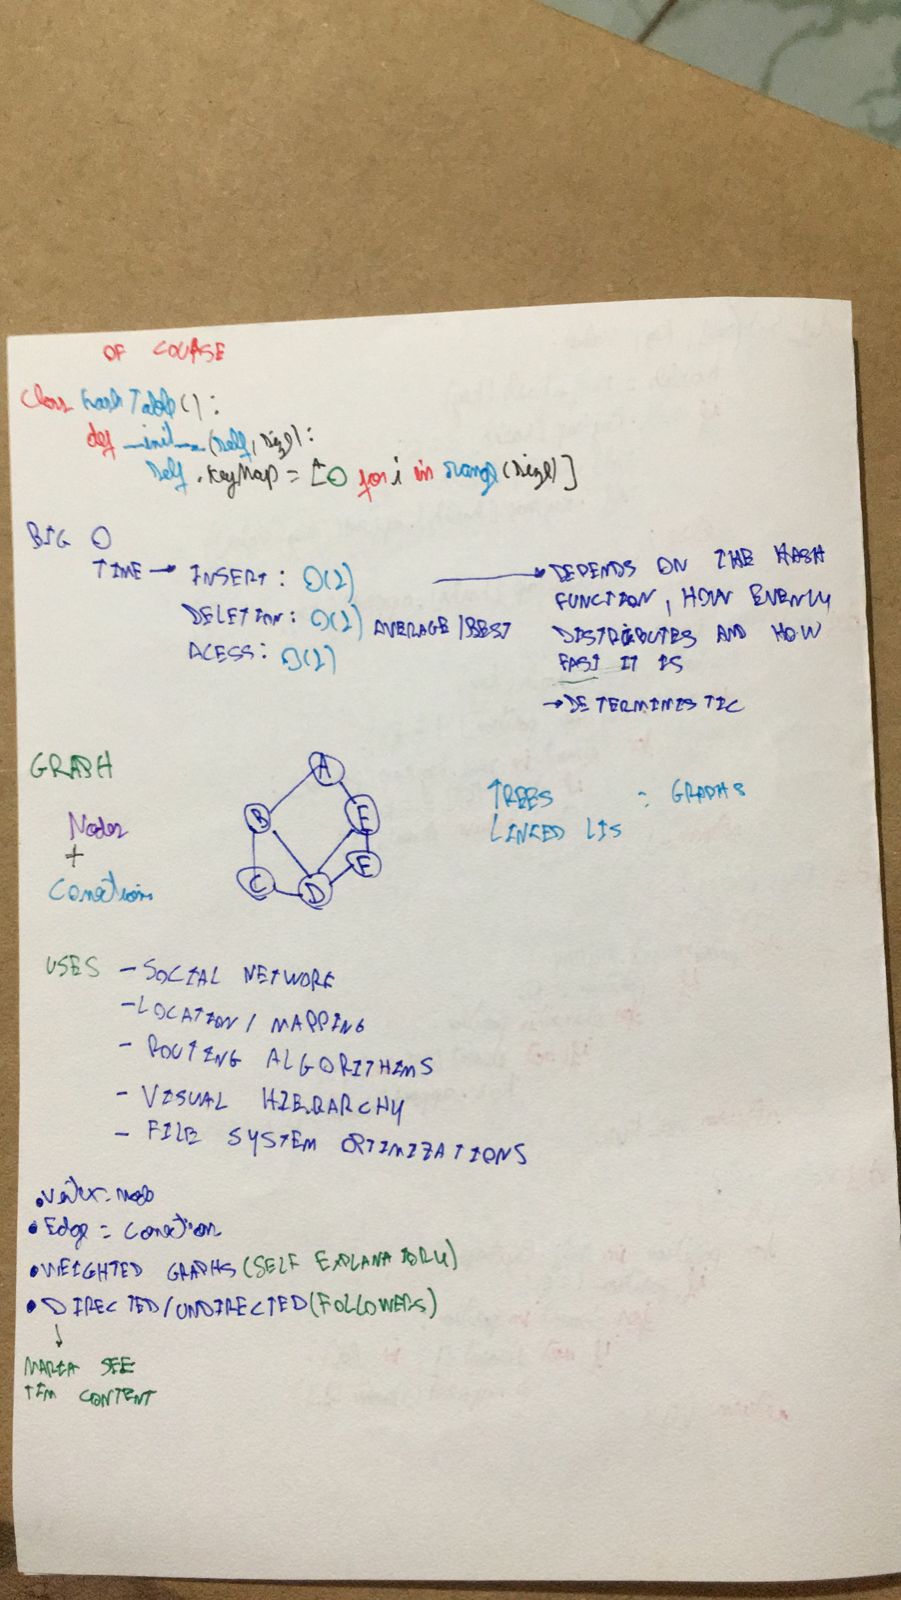 OF COURSE
class HashTable():
def __init__(self, size):
self.KeyMap = [0 for i in range(size)]
BIG O
TIME → INSERT: O(1)
DELETION: O(1) AVERAGE/BEST
ACESS: O(1)
→ DEPENDS ON THE HASH
FUNCTION, HOW EVENLY
DISTRIBUTES AND HOW
FAST IT IS
→ DETERMINISTIC
GRAPH
Nodes
+
Conections
A
B
E
F
C
D
TREES : GRAPHS
LINKED LIS
USES - SOCIAL NETWORK
- LOCATION / MAPPING
- ROUTING ALGORITHIMS
- VISUAL HIERARCHY
- FILE SYSTEM OPTIMIZATIONS
• Vertex = node
• Edge = Conection
• WEIGHTED GRAPHS (SELF EXPLANATORY)
• DIRECTED/UNDIRECTED (FOLLOWERS)
↓
MARIA SEE
TIM CONTENT